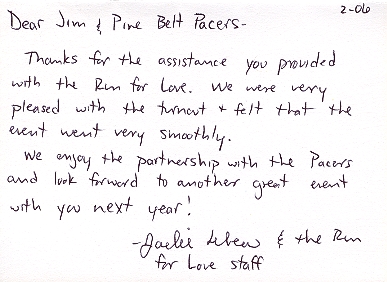 2-06
Dear Jim & Pine Belt Pacers-
Thanks for the assistance you provided
with the Run for Love. We were very
pleased with the turnout + felt that the
event went very smoothly.
We enjoy the partnership with the Pacers
and look forward to another great event
with you next year!
& the Run
for Love staff